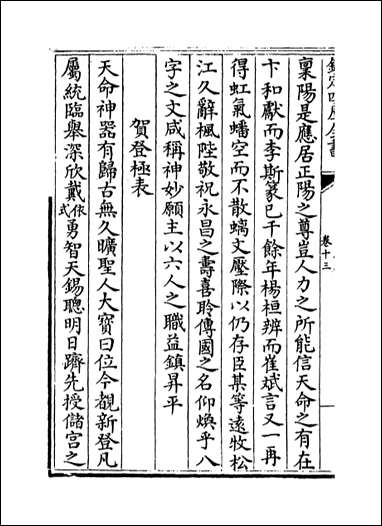 欽定四庫全書
卷十三
稟陽是應居正陽之尊豈人力之所能信天命之有在
卞和獻而李斯篆已千餘年楊桓辨而崔斌言又一再
得虹氣蟠空而不散螭文壓際以仍存臣其等遠牧松
江久辭楓陛敬祝永昌之壽喜聆傳國之名仰煥乎八
字之文咸稱神妙願主以六人之職益鎮昇平
賀登極表
天命神器有歸古無久曠聖人大寶曰位今覩新登凡
屬統臨舉深欣戴依式勇智天錫聰明日躋先授儲宮之